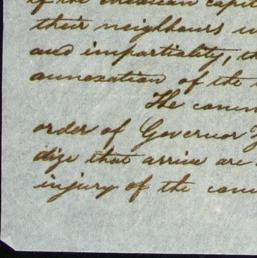 of the Mexican capit
their neighbours
and impartiality, th
annexation of the
The comm
order of Governor
dize that arrive are
injury of the com